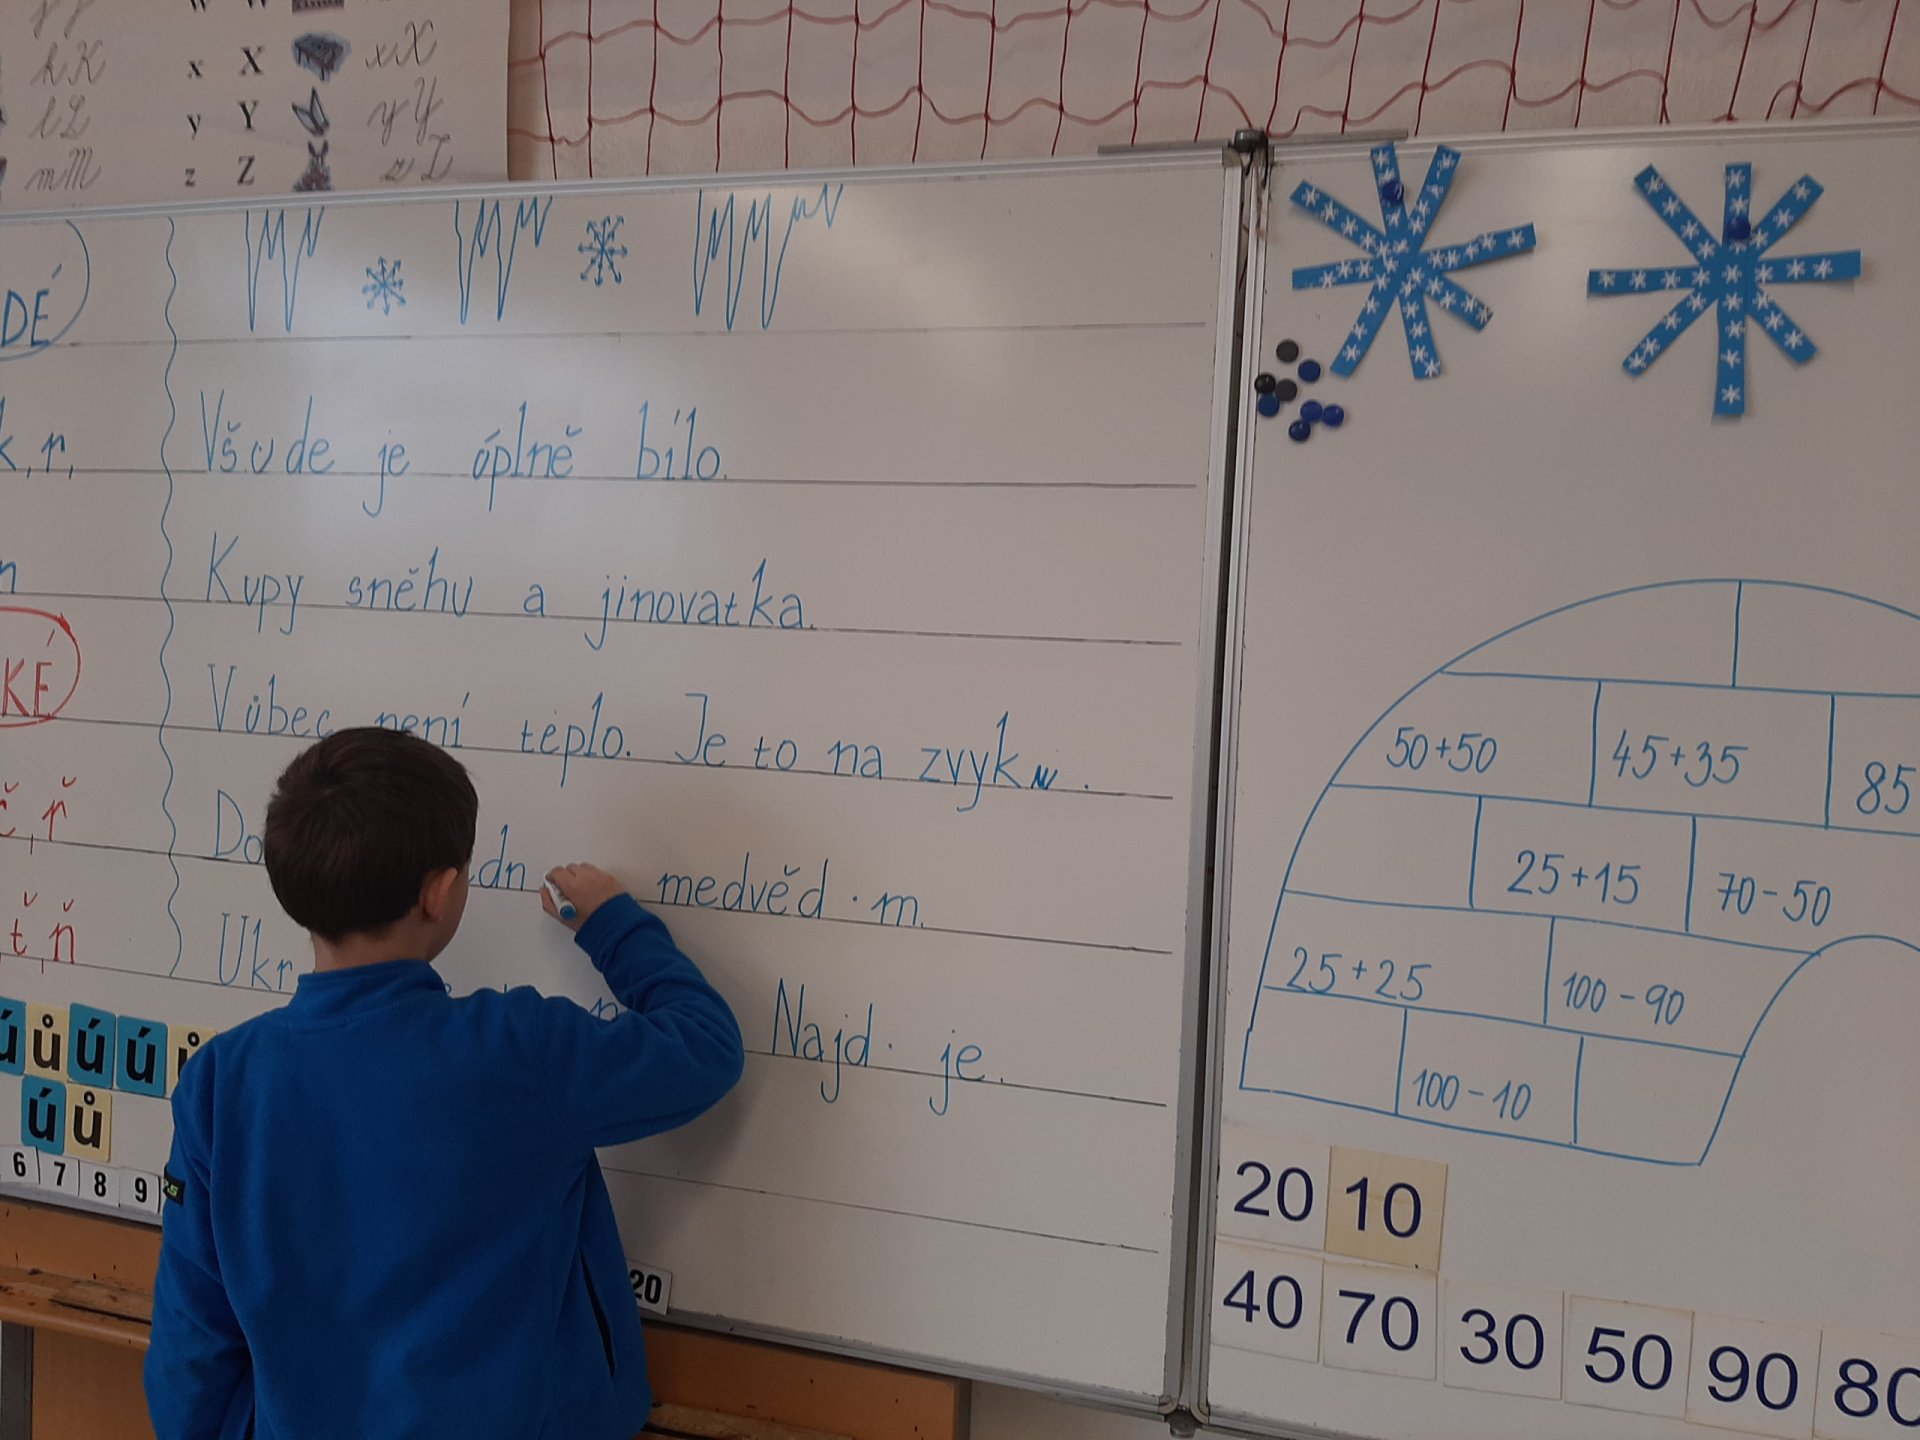 k K
x X x X
l L
y Y y Y
m M
z Z z Z
DÉ
k, r,
Všude je óplně bílo.
Kupy sněhu a jinovatka.
KÉ
Vůbec není teplo. Je to na zvyku.
č, ř
dn medvěd · m.
ť, ň
Ukr
Najd · je.
ú ů ú ú ů
ú ů
6 7 8 9
20
50+50 45+35 85
25+15 70-50
25+25 100-90
100-10
20 10
40 70 30 50 90 80